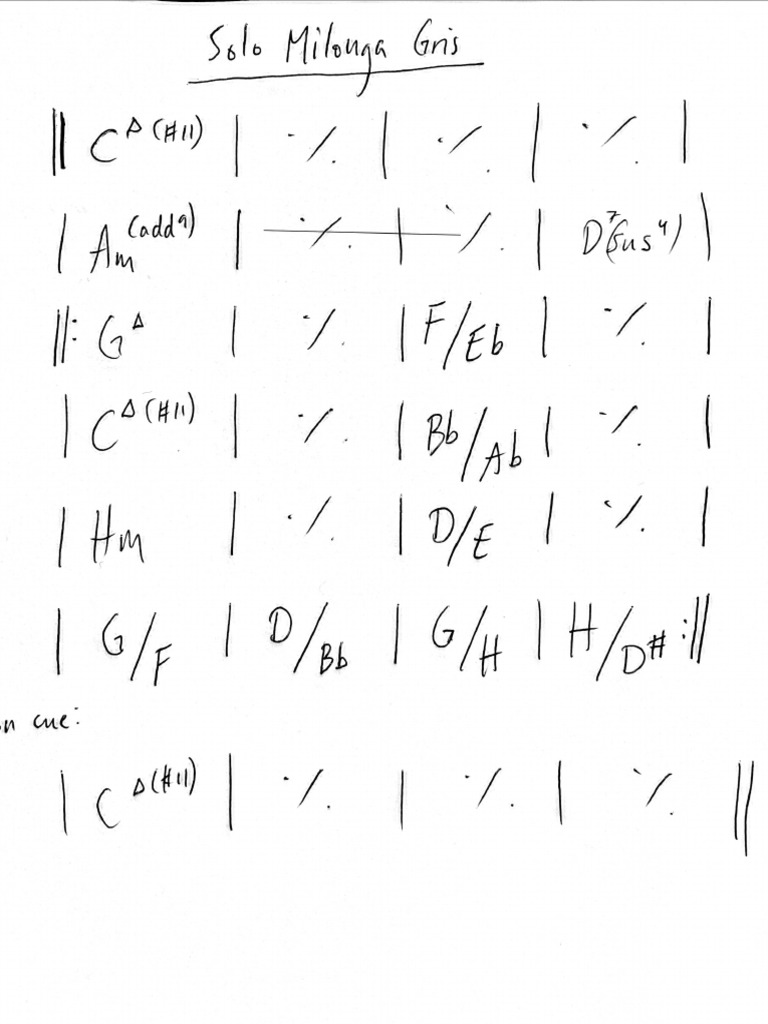 Solo Milonga Gris
|| C Δ(#11) | ٪ | ٪ | ٪ |
| Am (add9) | ٪ | ٪ | D7(sus4) |
||: G Δ | ٪ | F/Eb | ٪ |
| C Δ(#11) | ٪ | Bb/Ab | ٪ |
| Hm | ٪ | D/E | ٪ |
| G/F | D/Bb | G/H | H/D# :||
on cue:
| C Δ(#11) | ٪ | ٪ | ٪ ||